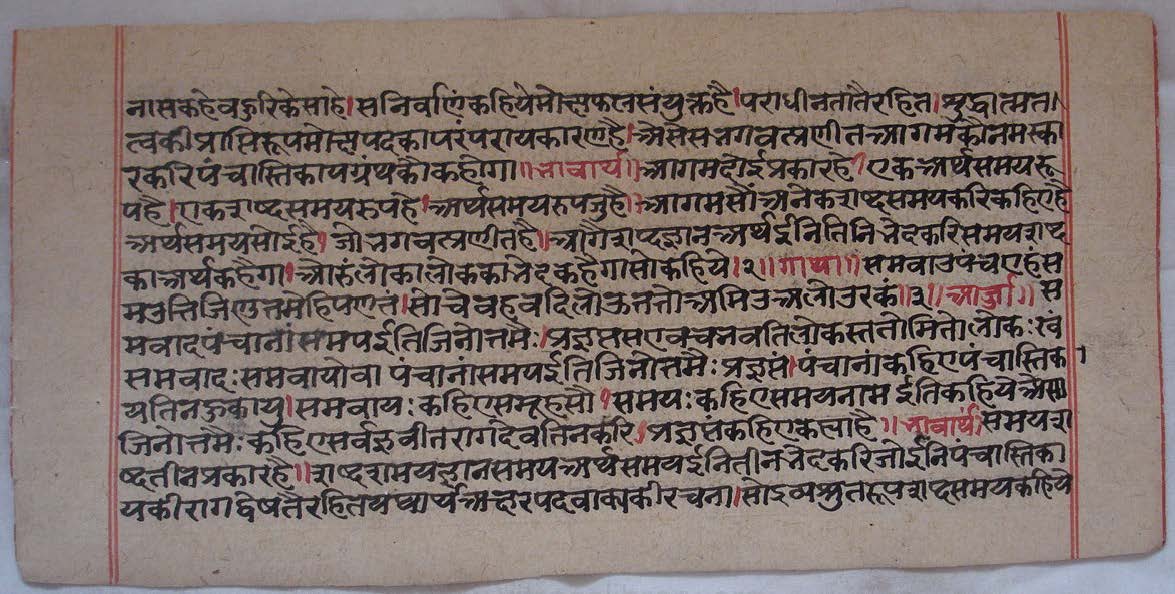 नासकहैवङरिकैसाहै। सनिर्वाणं कहियेमोक्षफलसंयुक्तहै। पराधीनतातैरहित। शुद्धात्मत।
त्वकीप्राप्तिरूपमोक्षपदकापरंपरायकारणहै। ऐसेभगवत्प्रणीतआगमकौनमस्का
रकरिपंचास्तिकायग्रंथकौकहौंगा॥ भावार्थ॥ आगमदोईप्रकारहै। एकअर्थसमयरू
पहै। एकशब्दसमयरूपहै। अर्थसमयरूपजुहै। आगमसौंअनेकशब्दसमयकरिकहिएहै
अर्थसमयसोईहै। जोभगवत्प्रणीतहै। आगैशब्दज्ञानअर्थईनितिनिभेदकरिसमयशब्द
काअर्थकहैगा। औरुलोकालोककाभेदकहैगासोकहिये। ३॥ गाथा॥ समवाउपंचण्हंस
मउत्तिजिणुत्तमेहिपणत्तं। सोचेवहवदिलोऊतत्तोअमिउअलोउरकं॥३॥ आर्जा॥ स
मवादपंचानांसमयईतिजिनोत्तमैः। प्रज्ञप्तसएवचनवतिलोकस्ततोमितोलोकःखं
समवादःसमवायोवा पंचानांसमयईतिजिनोत्तमैःप्रज्ञप्तं। पंचानांकहिएपंचास्तिका
यतिनकाजु। समवायःकहिएसमूहसौ। समयःकहिएसमयनाम ईतिकहिये
जिनोत्तमैःकहिएसर्वज्ञवीतरागदेवतिनकरि। प्रज्ञप्तंकहिएकह्याहै॥ भावार्थ। समयश
ब्दतीनप्रकारहै॥ शब्दसमयज्ञानसमयअर्थसमयईनितीनभेदकरिजोईनिपंचास्तिका
यकीरागद्वेषतैरहितयथार्थअक्षरपदवाक्यकीरचना। सोद्रव्यश्रुतरूपशब्दसमयकहिये